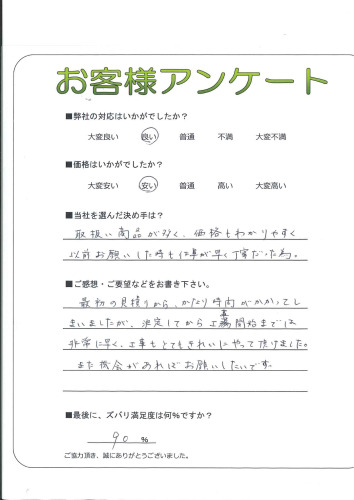 お客様アンケート
■弊社の対応はいかがでしたか?
大変良い 良い 普通 不満 大変不満
■価格はいかがでしたか?
大変安い 安い 普通 高い 大変高い
■当社を選んだ決め手は?
取扱い商品が多く、価格もわかりやすく
以前お願いした時も仕事が早く丁寧だった為。
■ご感想・ご要望などをお書き下さい。
最初の見積りから、かなり時間がかかってし
まいましたが、決定してから工事開始までは
非常に早く、工事もとてもきれいにやって頂けました。
また機会があればお願いしたいです。
■最後に、ズバリ満足度は何%ですか?
90 %
ご協力頂き、誠にありがとうございました。